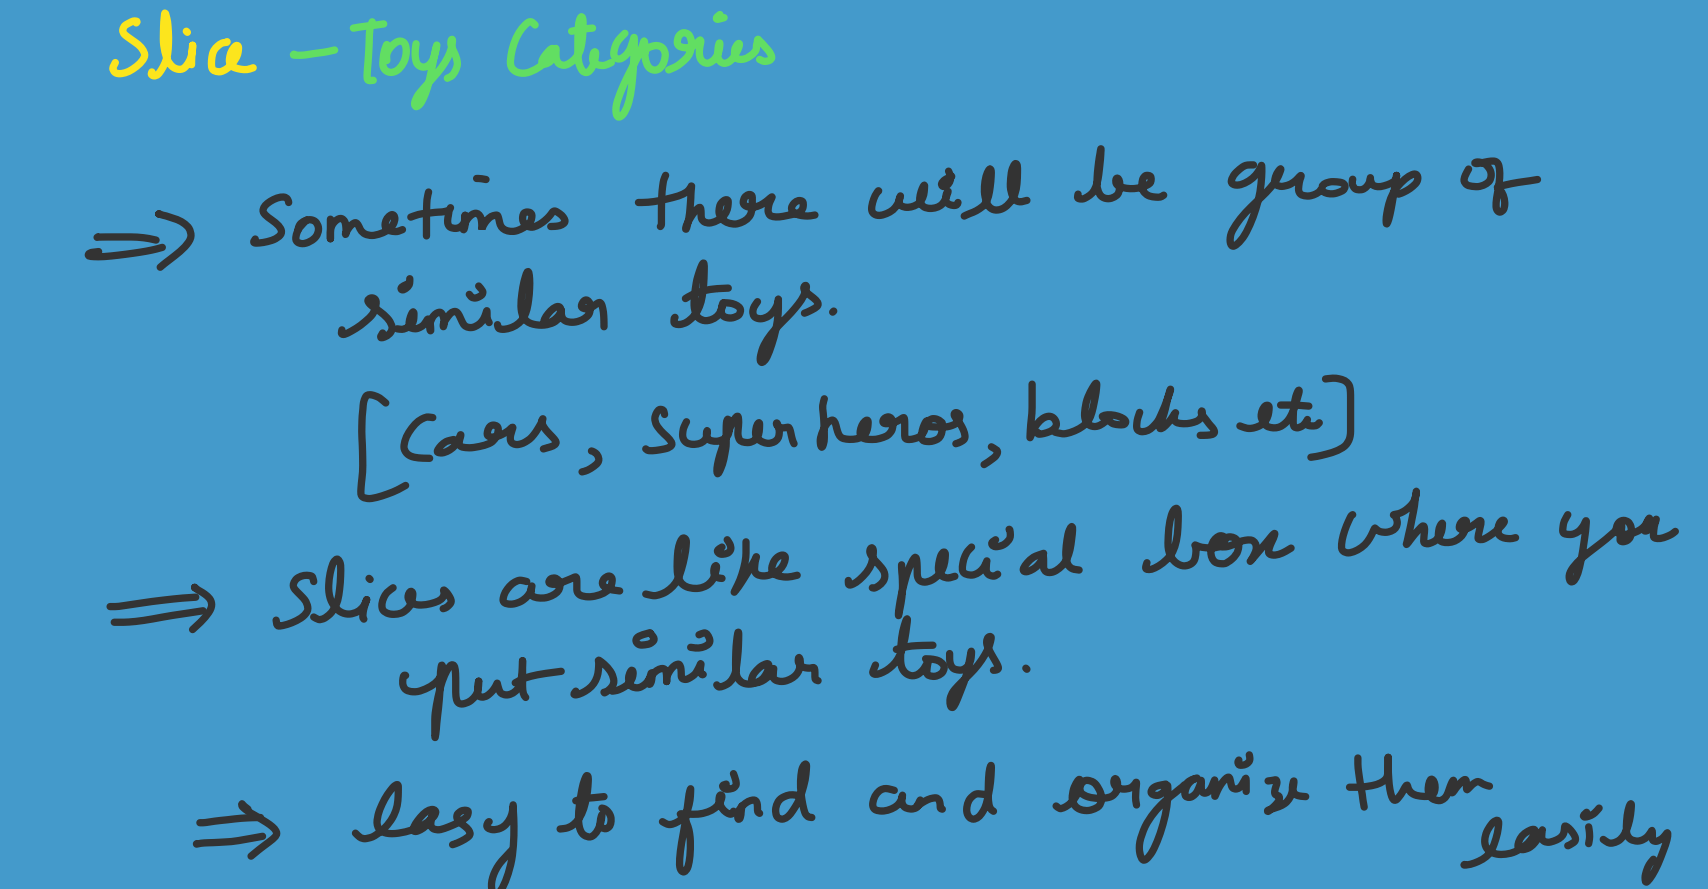 Slice - Toys Categories
⇒ Sometimes there will be group of
similar toys.
[Cars, superheros, blocks etc]
⇒ Slices are like special box where you
put similar toys.
⇒ easy to find and organize them
easily